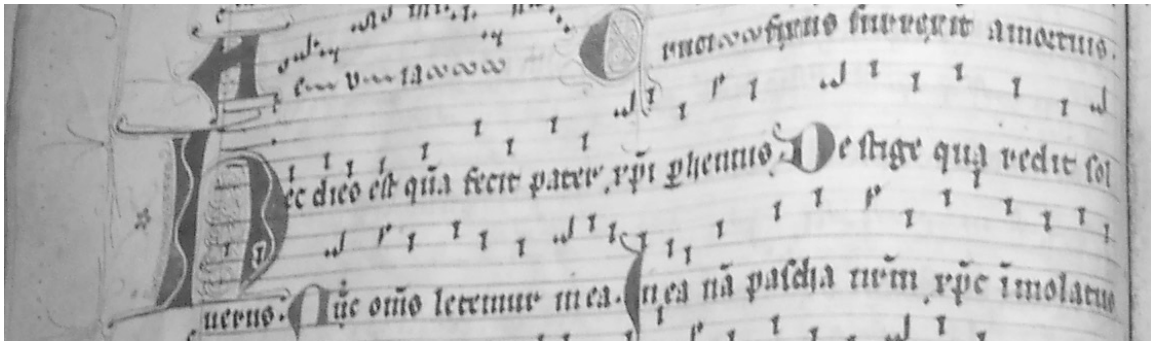 surrexit a mortuis.
Hec dies est qua᷈ fecit pater xp̄i ꝑhennis. De stige qua redit sol
uerus. Nūc om̄s letemur in ea. In ea nā pascha nr̄m xp̄c īmolatus